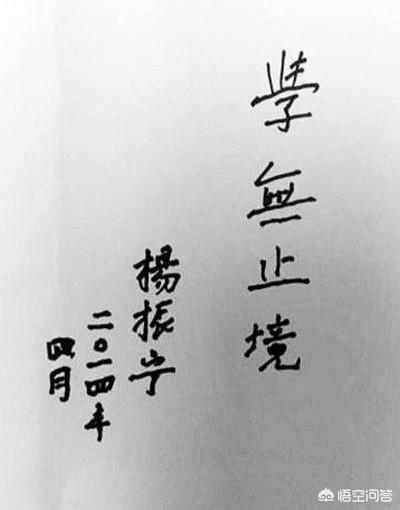 學無止境
楊振宁
二〇一四年
四月
悟空问答